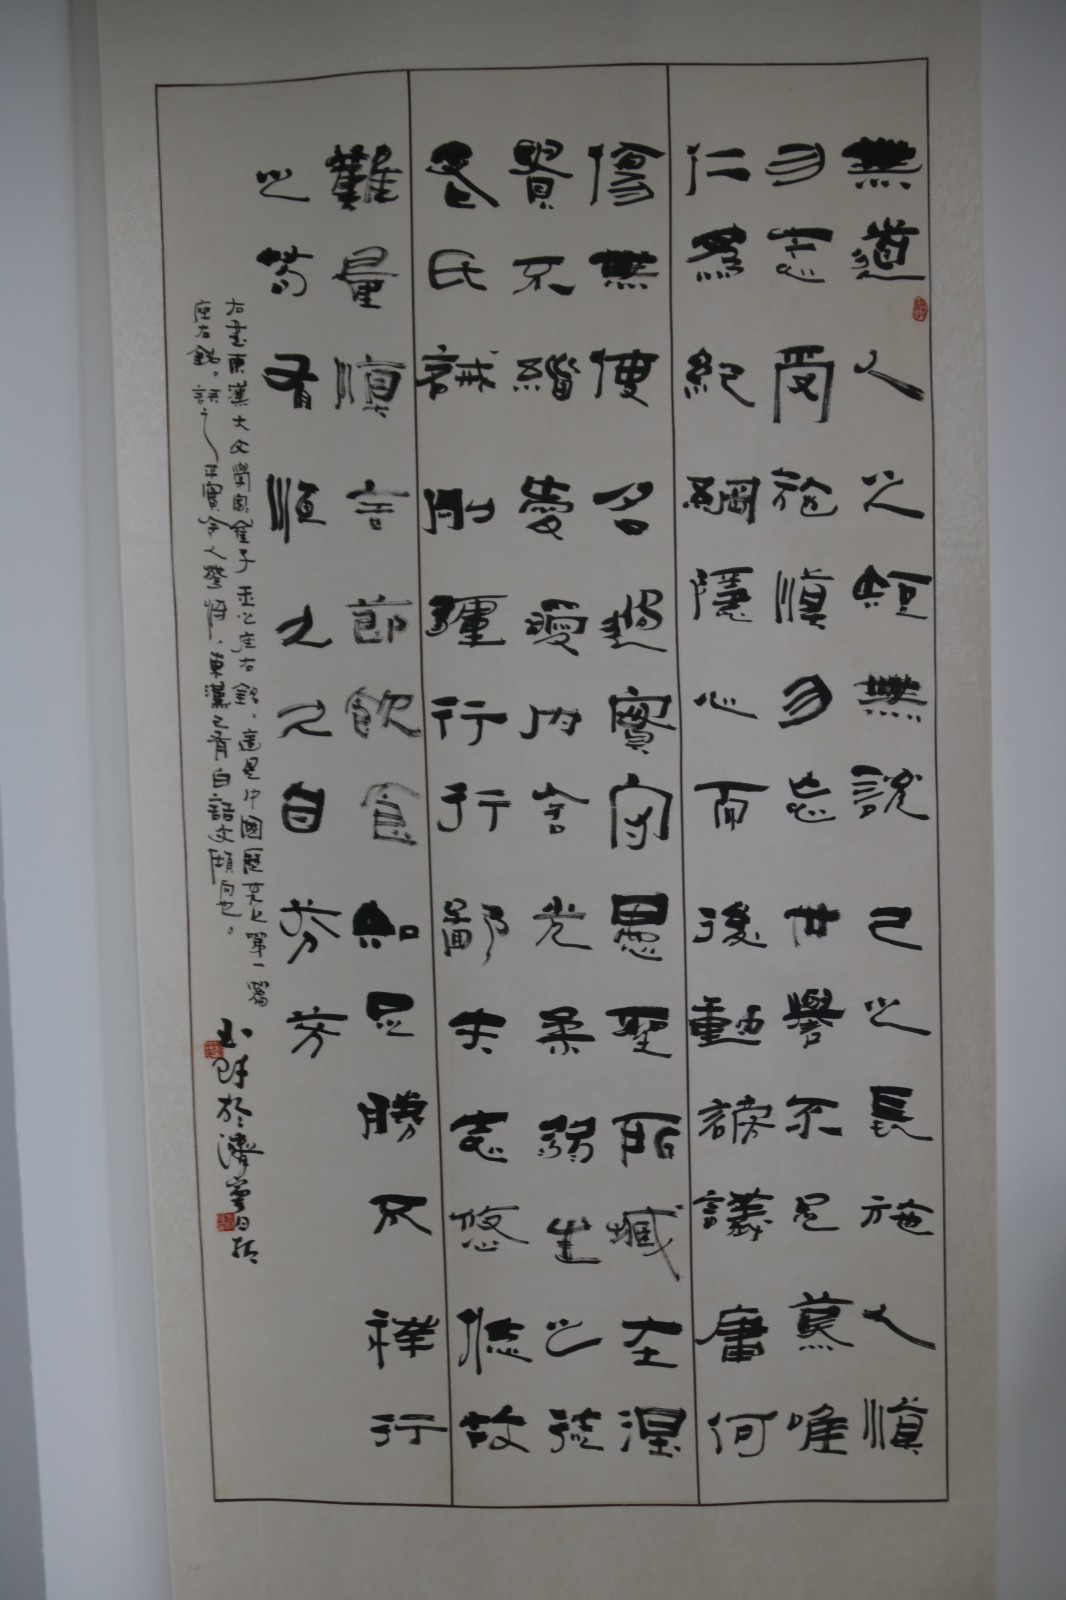 無道人之短無說己之長施人慎
勿念受施慎勿忘世譽不足慕唯
仁為紀綱隱心而後動謗議庸何
傷無使名過實守愚聖所臧在涅
賢不緇曖曖內含光柔弱生之徒
老氏誡剛彊行行鄙夫志悠悠故
難量慎言節飲食知足勝不祥行
之苟有恒久之自芬芳
右書東漢大文學家崔子玉之座右銘，這是中國歷史上第一篇
座右銘。讀之平實令人警悟，東漢已有白話文傾向也。
於濟